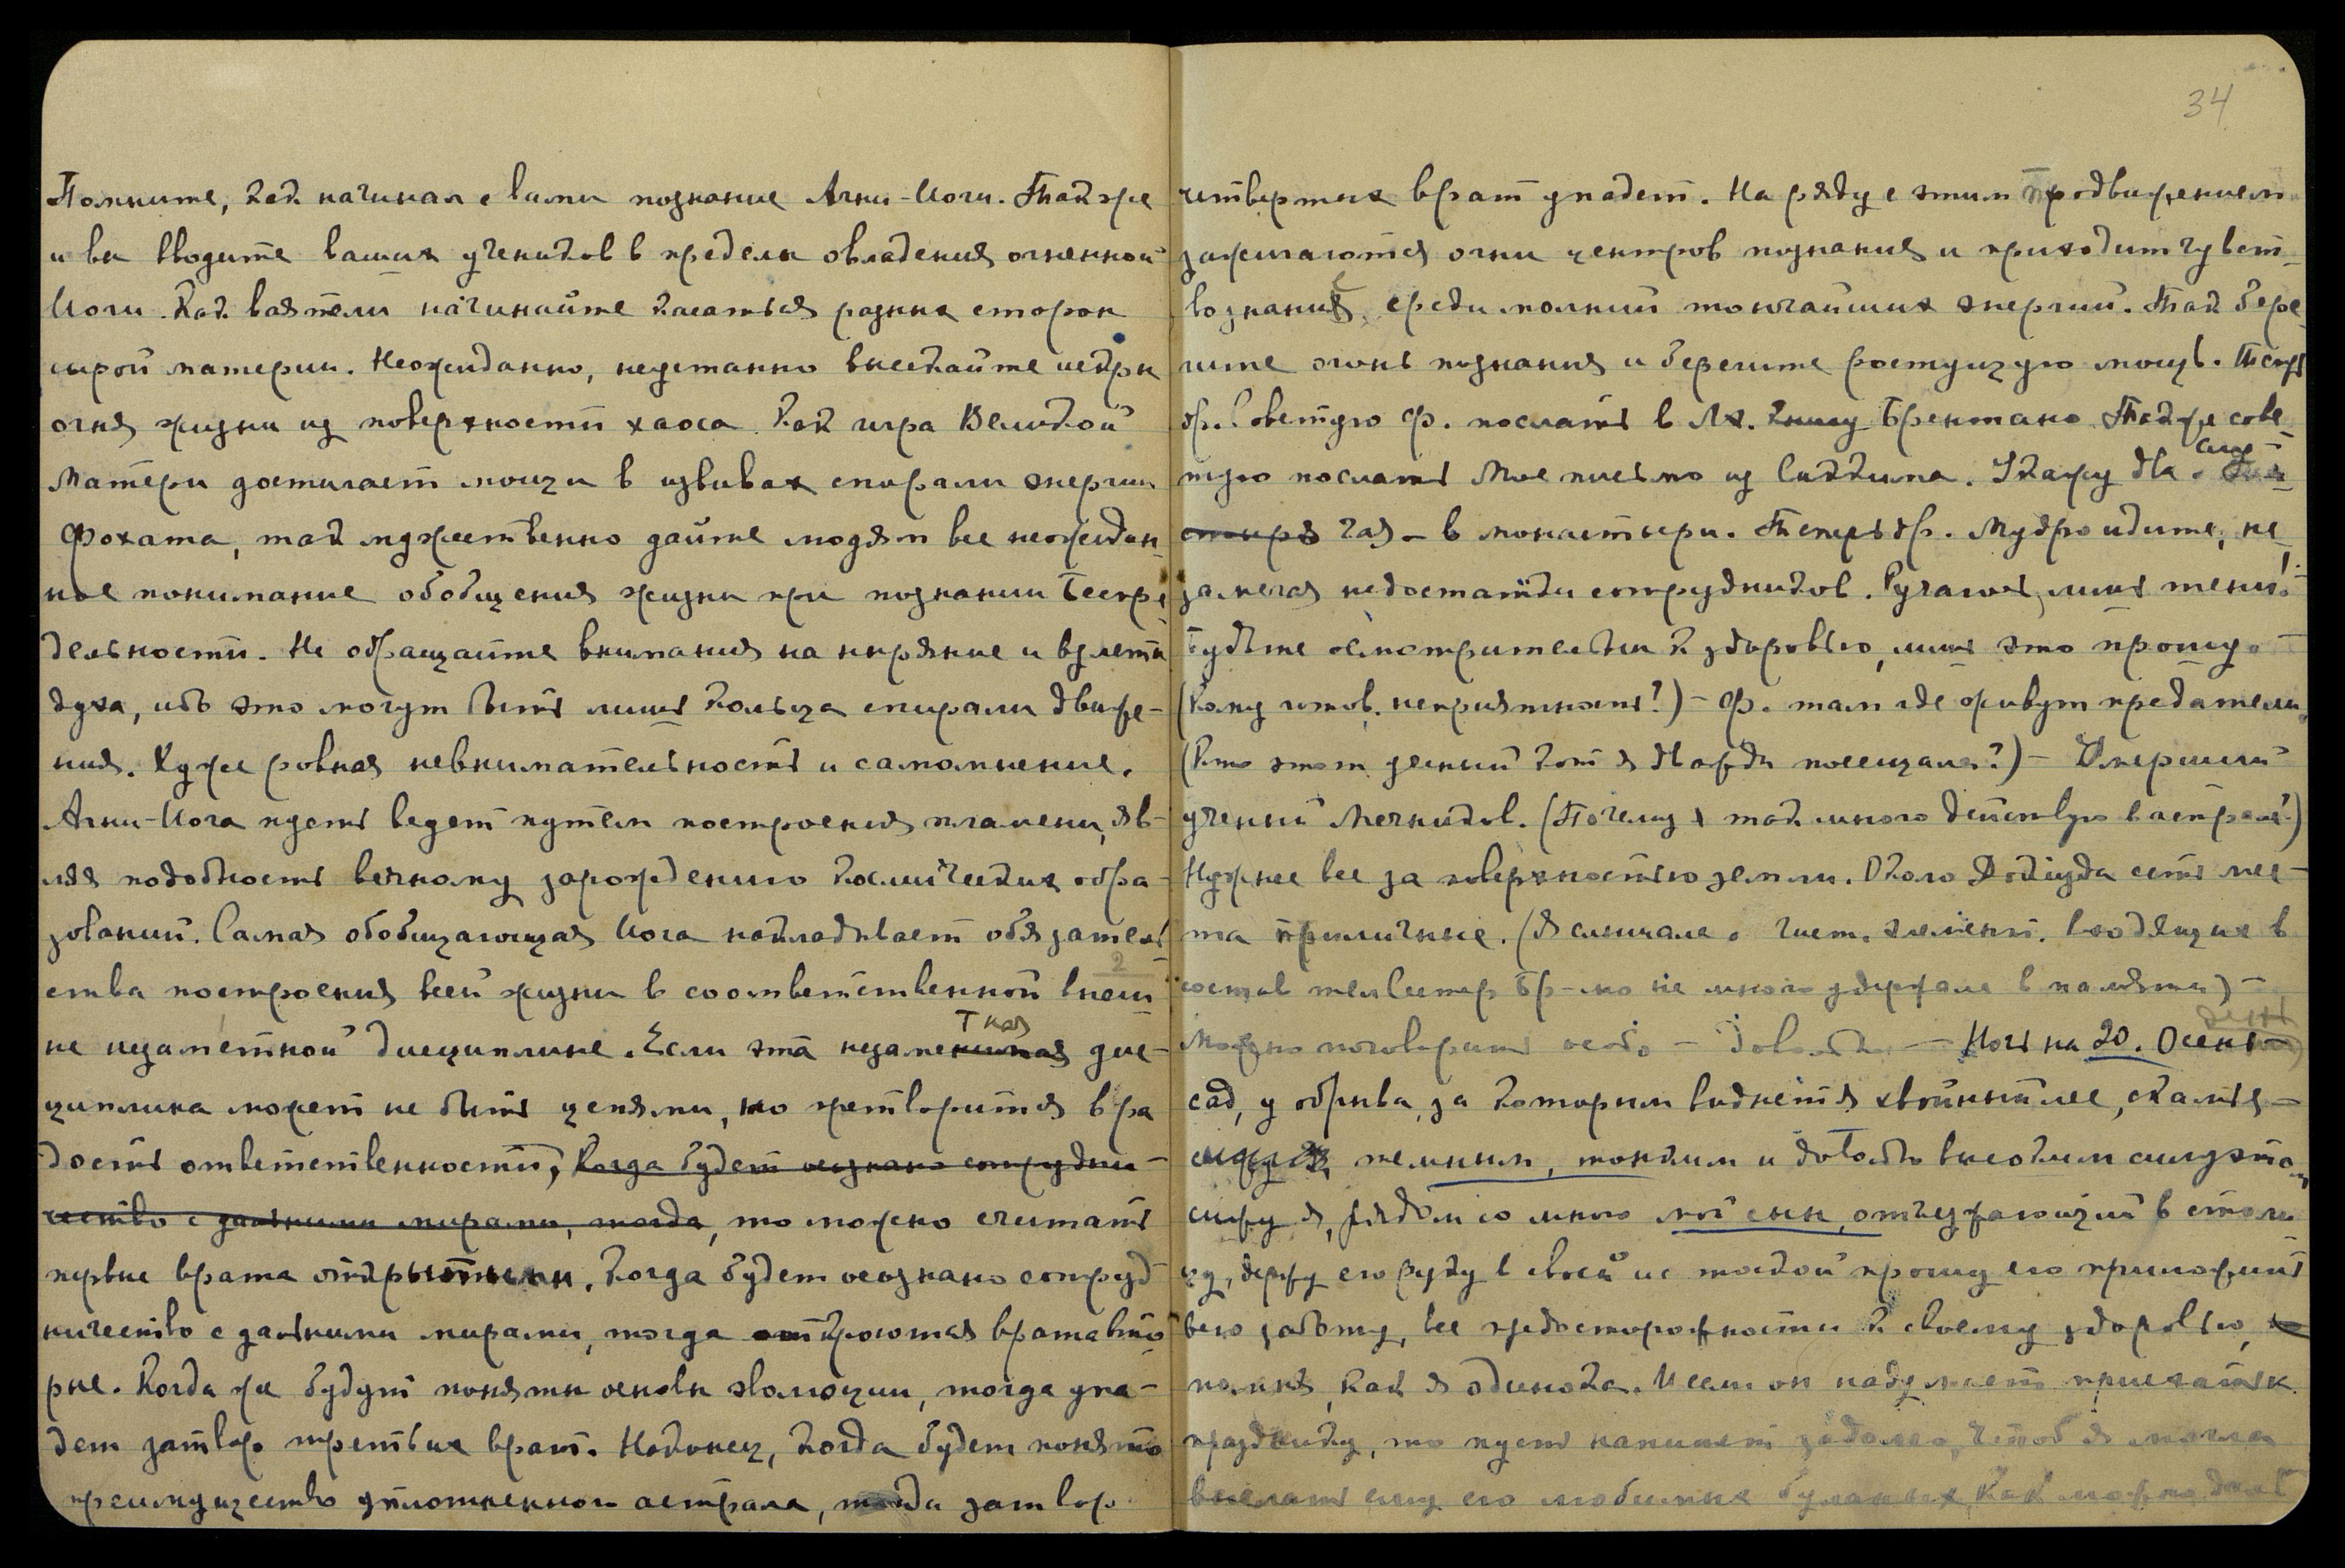 Помните, как начинал с вами познание Агни-Йоги. Также
и вы вводите ваших учеников в пределы овладения огненной
Йоги. Как ваятели начинайте касаться разных сторон
сырой материи. Неожиданно, неустанно высекайте искры
огня жизни из поверхности хаоса. Как игра Великой
Матери достигает мощи в извивах спирали энергии
Фохата, так мужественно дайте людям все неожидан-
ное понимание обобщения жизни при познании Беспре
дельности. Не обращайте внимания на ныряние и взлеты
духа, ибо это могут быть лишь кольца спирали движе-
ния. Хуже ровная невнимательность и самомнение.
Агни-Йога пусть ведет путем построения пламени, яв-
ляя подобность вечному зарождению космических обра-
зований. Самая обобщающая Йога накладывает обязатель
ства построения всей жизни в соответственной внеш
2
не незаметной дисциплине. Если эта незаменимая дис-
ткая
циплина может не быть цепями, но претворится в ра
дость ответственности, когда будет осознано сотрудни-
чество с дальними мирами, тогда, то можно считать
первые врата открытыми. Когда будет осознано сотруд
ничество с дальними мирами, тогда откроются врата вто
рые. Когда же будут поняты основы эволюции, тогда упа-
дет затвор третьих врат. Наконец, когда будет понято
преимущество уплотненного астрала, тогда затвор
34
четвертых врат упадет. На ряду с этим продвижением
зажигаются огни центров познания и приходит чувст-
вознание среди молний тончайших энергий. Так бере
гите огонь познания и берегите ростущую мощь.
др. Советую Ф. послать в Ам. книгу Брентано. Также сове
тую послать Мое письмо из Сиккима. Укажу два
час - в монастыри. Теперь др. Мудро идите, не
замечая недостатки сотрудников. Ручаюсь, лишь тени!
Будьте осмотрительны к здоровью, лишь это прошу.
(Кому готов. неприятность?) - Ф. там где живут предатели.
(Кто этот ученый кот. я дважды посещала?) - Умерший
ученый Мечников. (Почему я так много действую в астрале?)
Нужнее все за поверхностью земли. Около есть мес-
та приличные. (Я слышала о чист. элемент. входящих в
состав тел сестер Бр-ло не много удержала в памяти) -
Можно поговорить особо - Довольно - Ночь на 20. Осень -
день
сад, у обрыва, за которым виднеется хвойный лес, скамья -
темным, тонким и довольно высоким силуэтом
сижу я, рядом со мною мой сын, отъезжающий в столи
цу, держу его руку в своей и с тоской прошу его приложить
всю заботу, все предосторожности к своему здоровью,
помня, как я одинока. И если он надумает приехать к
празднику, то пусть напишет задолго, чтоб я могла
выслать ему его любимых буланых. Как можно